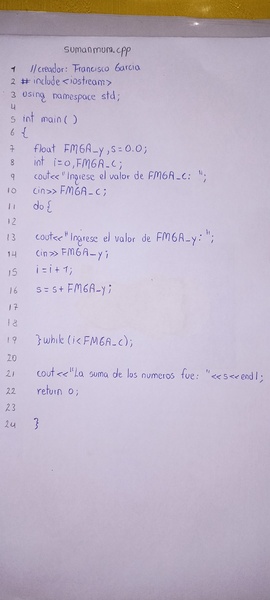 sumanmuns.cpp
1 //creador: Francisco Garcia
2 # include <iostream>
3 using namespace std;
4
5 int main( )
6 {
7 float FMGA_y, s=0.0;
8 int i=0, FMGA_c;
9 cout<<"Ingrese el valor de FMGA_c: ";
10 cin>>FMGA_c;
11 do{
12
13 cout<<"Ingrese el valor de FMGA_y: ";
14 cin>>FMGA_y;
15 i=i+1;
16 s=s+FMGA_y;
17
18
19 }while(i<FMGA_c);
20
21 cout<<"La suma de los numeros fue: "<<s<<endl;
22 return 0;
23
24 }